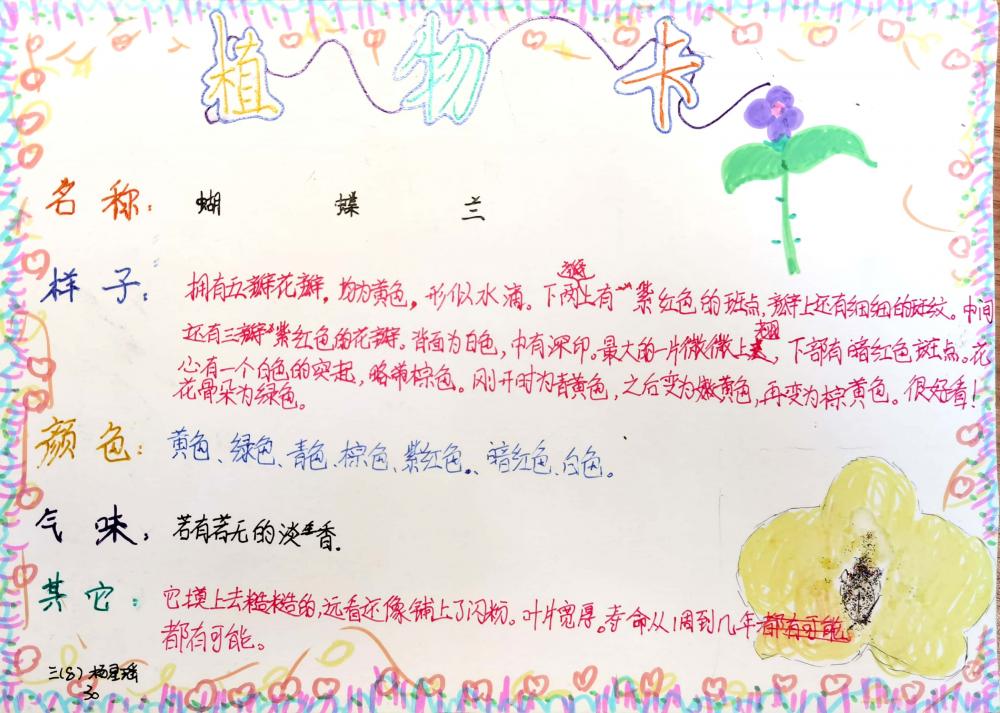 植物卡
名称：蝴蝶兰
样子：拥有五瓣花瓣，均为黄色，形似水滴。下两瓣上有紫红色的斑点，瓣上还有细细的斑纹。中间
还有三瓣紫红色的花瓣。背面为白色，中有深印。最大的一片微微上翘，下部有暗红色斑点。花
心有一个白色的突起，略带棕色。刚开时为青黄色，之后变为嫩黄色，再变为棕黄色。很好看！
花骨朵为绿色。
颜色：黄色、绿色、青色、棕色、紫红色、暗红色、白色。
气味：若有若无的淡香。
其它：它摸上去糙糙的，远看还像铺上了闪粉。叶片宽厚。寿命从1周到几年都有可能
都有可能。
三(8) 杨星瑶
30